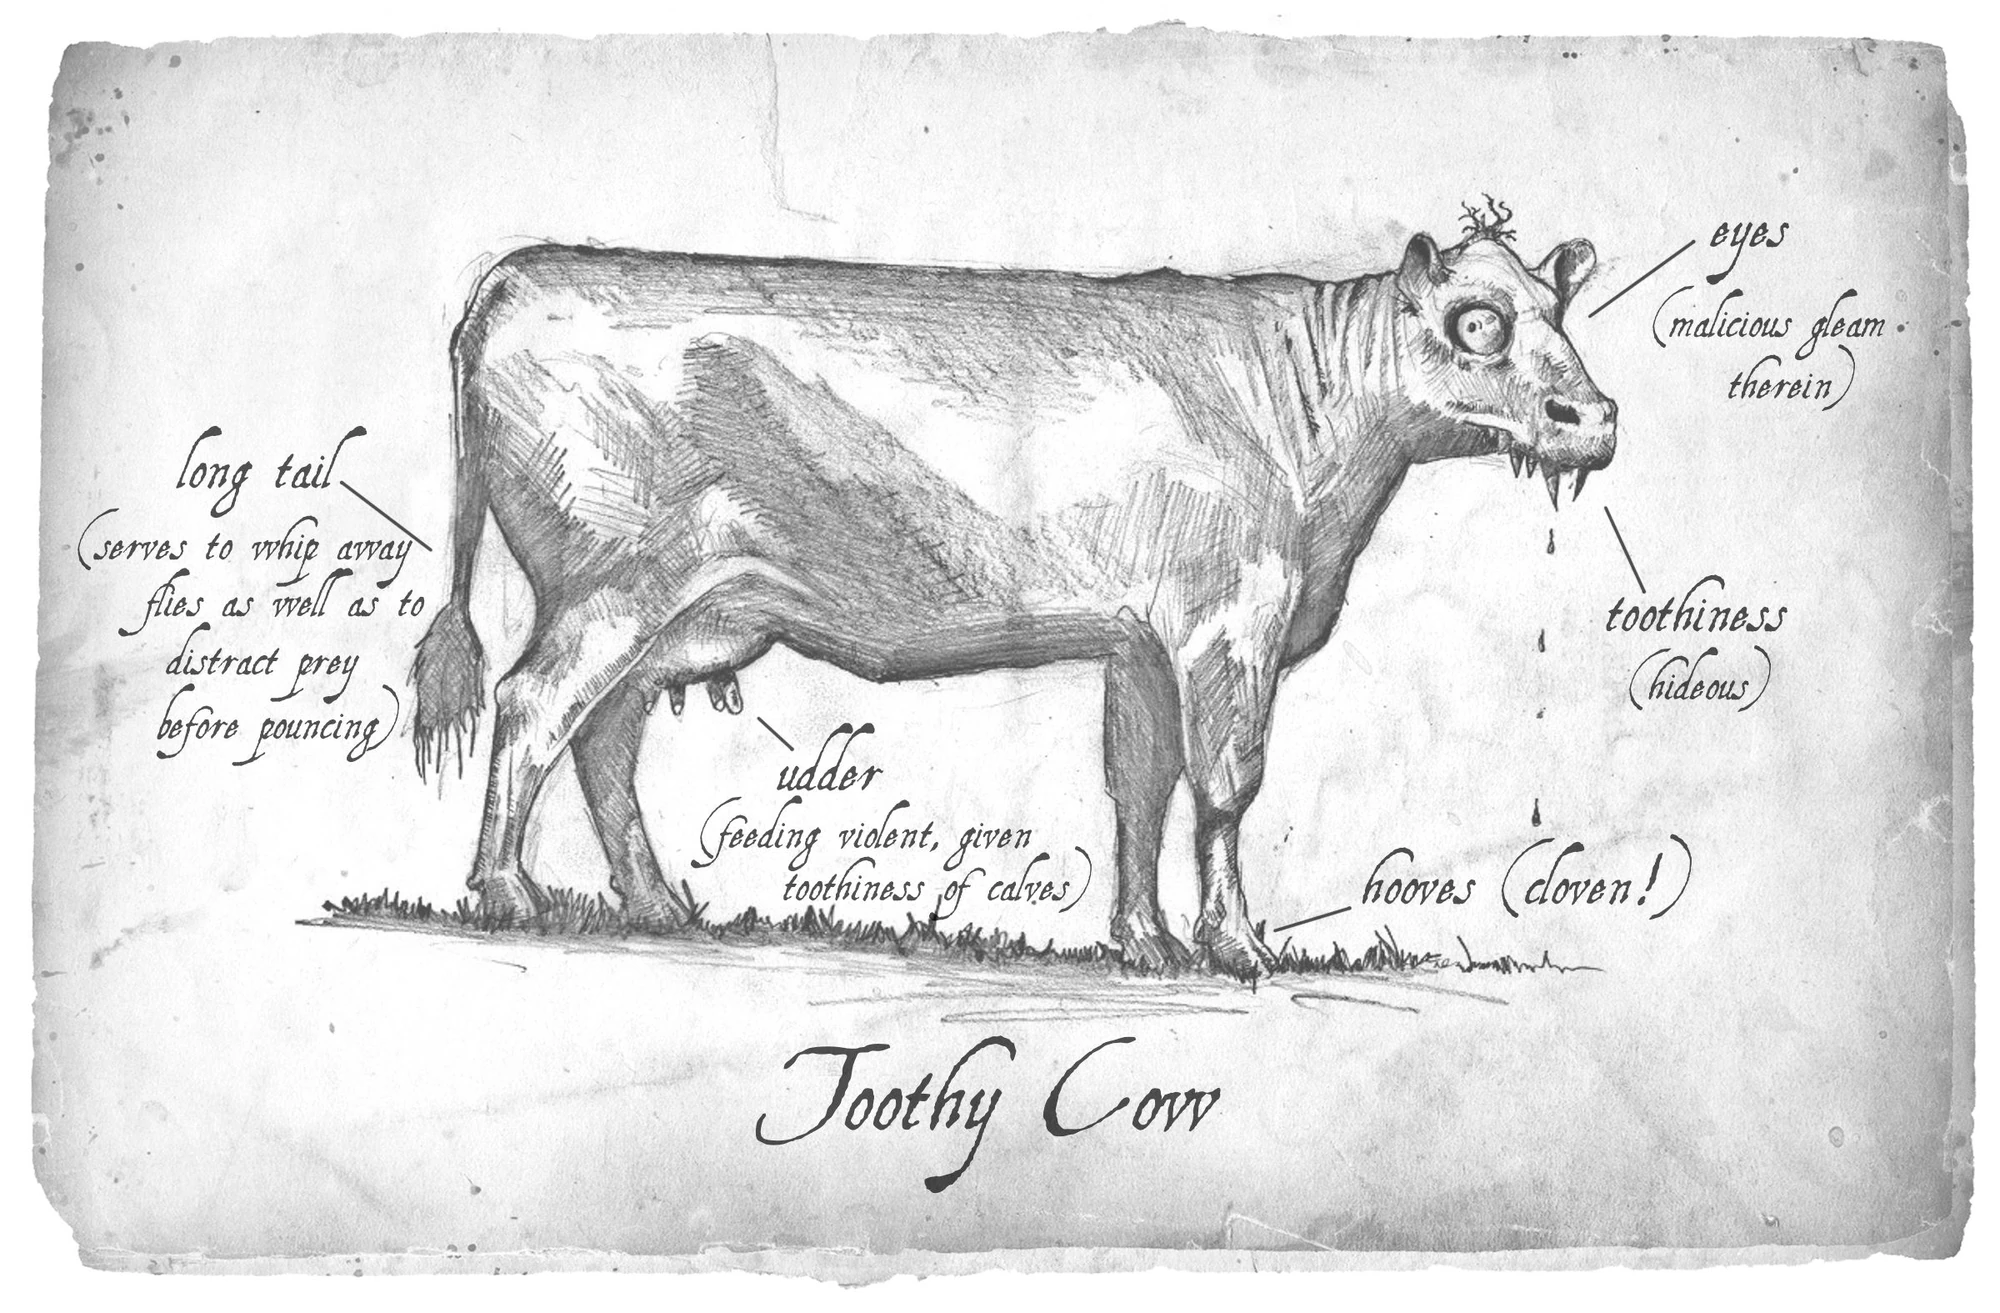 eyes
(malicious gleam
therein)
long tail
(serves to whip away
flies as well as to
distract prey
before pouncing)
toothiness
(hideous)
udder
(feeding violent, given
toothiness of calves)
hooves (cloven!)
Toothy Cow